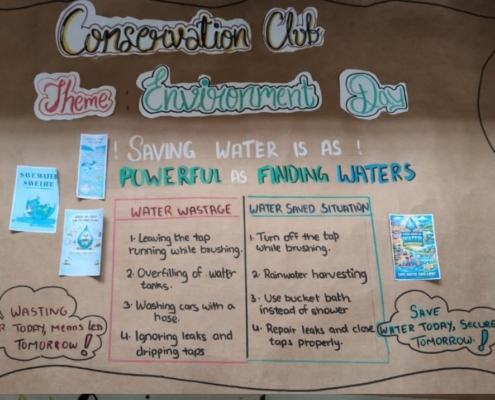 Conservation Club
Theme: Environment Day
! SAVING WATER IS AS !
POWERFUL AS FINDING WATERS
SAVE WATER
SAVE LIFE
WATER WASTAGE
1. Leaving the tap
running while brushing.
2. Overfilling of water
tanks.
3. Washing cars with a
hose.
4. Ignoring leaks and
dripping taps
WATER SAVED SITUATION
1. Turn off the tap
while brushing.
2. Rainwater harvesting
3. Use bucket bath
instead of shower
4. Repair leaks and close
taps properly.
WASTING
TODAY, Means less
TOMORROW!
SAVE
WATER TODAY, SECURE
TOMORROW.!